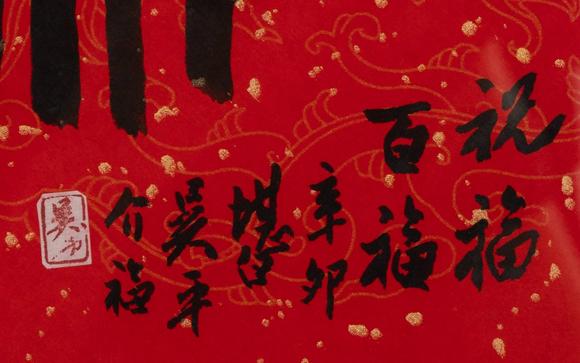 祝福
百福
辛卯
吴平
介福
吴